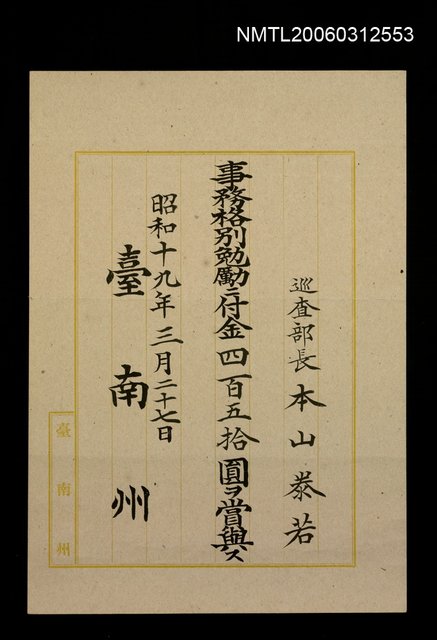 NMTL20060312553
巡查部長 本山泰若
事務格別勉勵ニ付金四百五拾圓ヲ賞與ス
昭和十九年三月二十七日
臺南州
臺南州